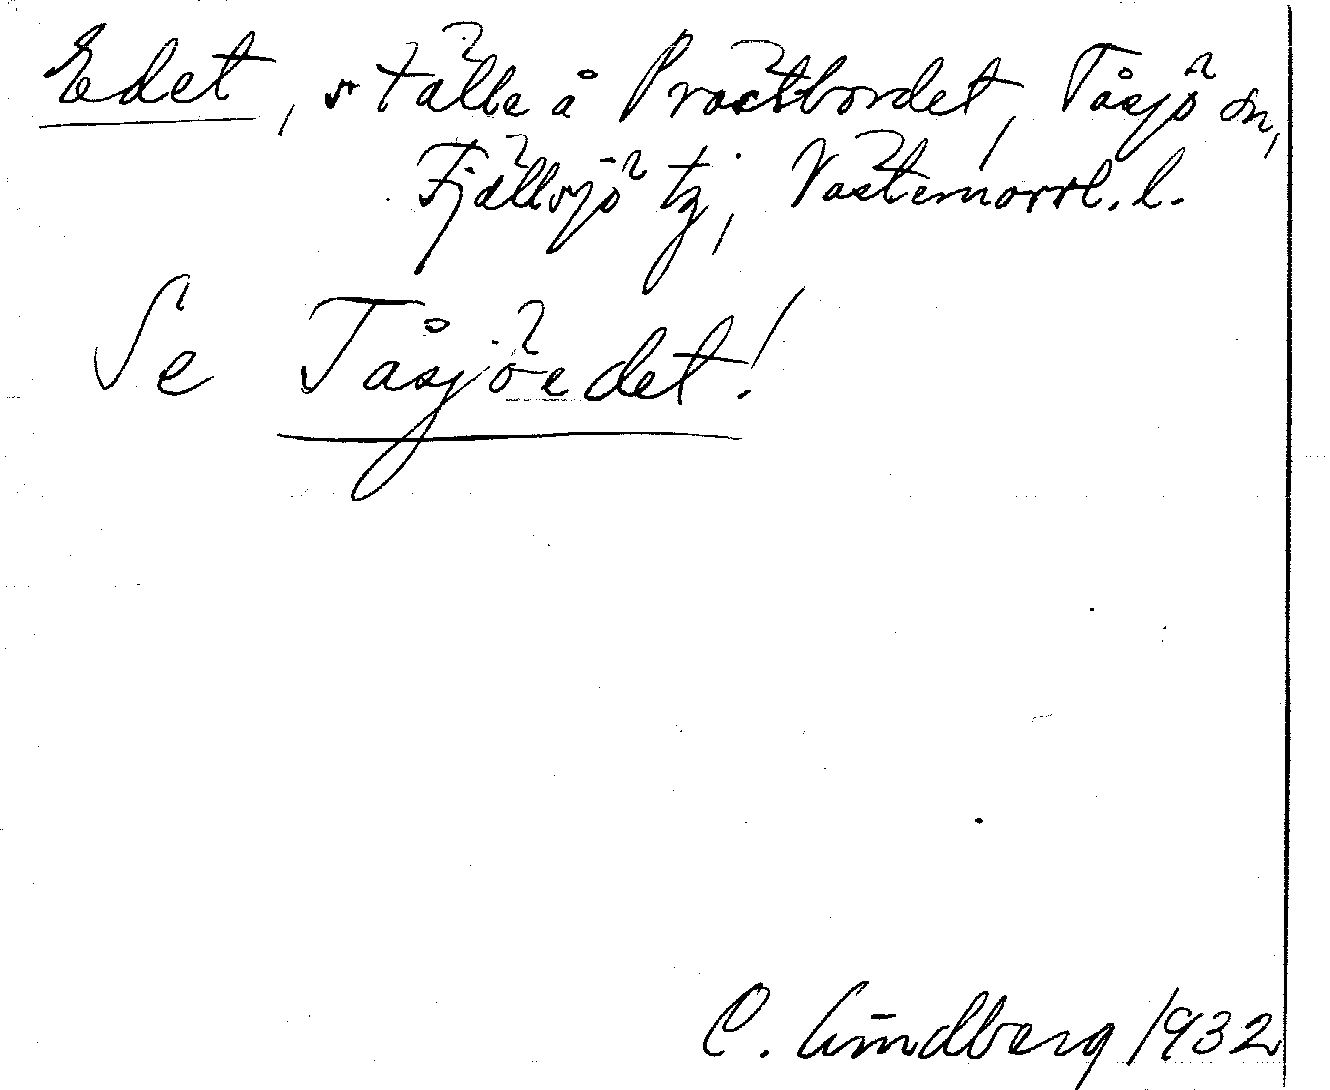 Edet, ställe å Prästbordet, Tåsjö sn,
Fjällsjö tg, Västernorrl. l.
Se Tåsjöedet!
C. Lindberg 1932